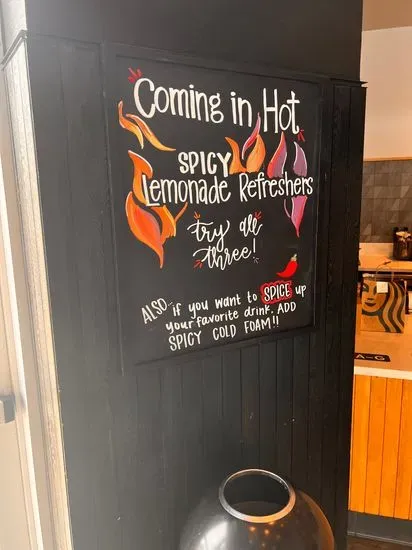 Coming in Hot
SPICY
Lemonade Refreshers
try all
three!
ALSO if you want to SPICE up
your favorite drink, ADD
SPICY COLD FOAM!!
A-G